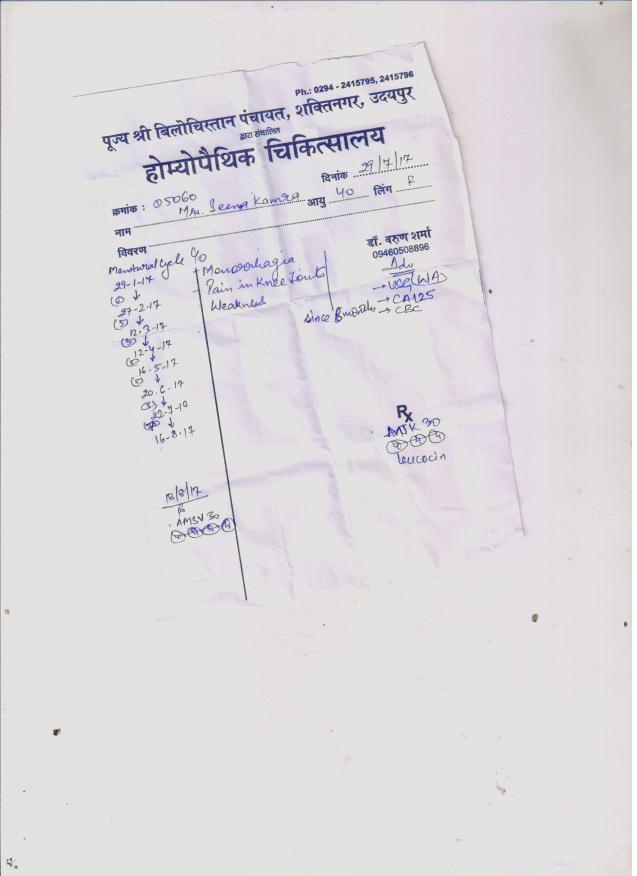 Ph.: 0294 - 2415795, 2415796
पूज्य श्री बिलोचिस्तान पंचायत, शक्तिनगर, उदयपुर
द्वारा संचालित
होम्योपैथिक चिकित्सालय
दिनांक 29/7/17
क्रमांक : 05060
नाम Mrs. Seema Kamra आयु 40 लिंग F
विवरण
डॉ. वरुण शर्मा
09460508896
Menstural Cycle
29-1-17
27-2-17
12-3-17
12-4-17
16-5-17
20-6-17
16-8-17
C/o
Menorrhagia
Pain in Knee Joints
Weakness
since 8 months
Adv
→ USG (WA)
→ CA125
→ CBC
Rx
30
leucocin
18/8/17
Rx
30